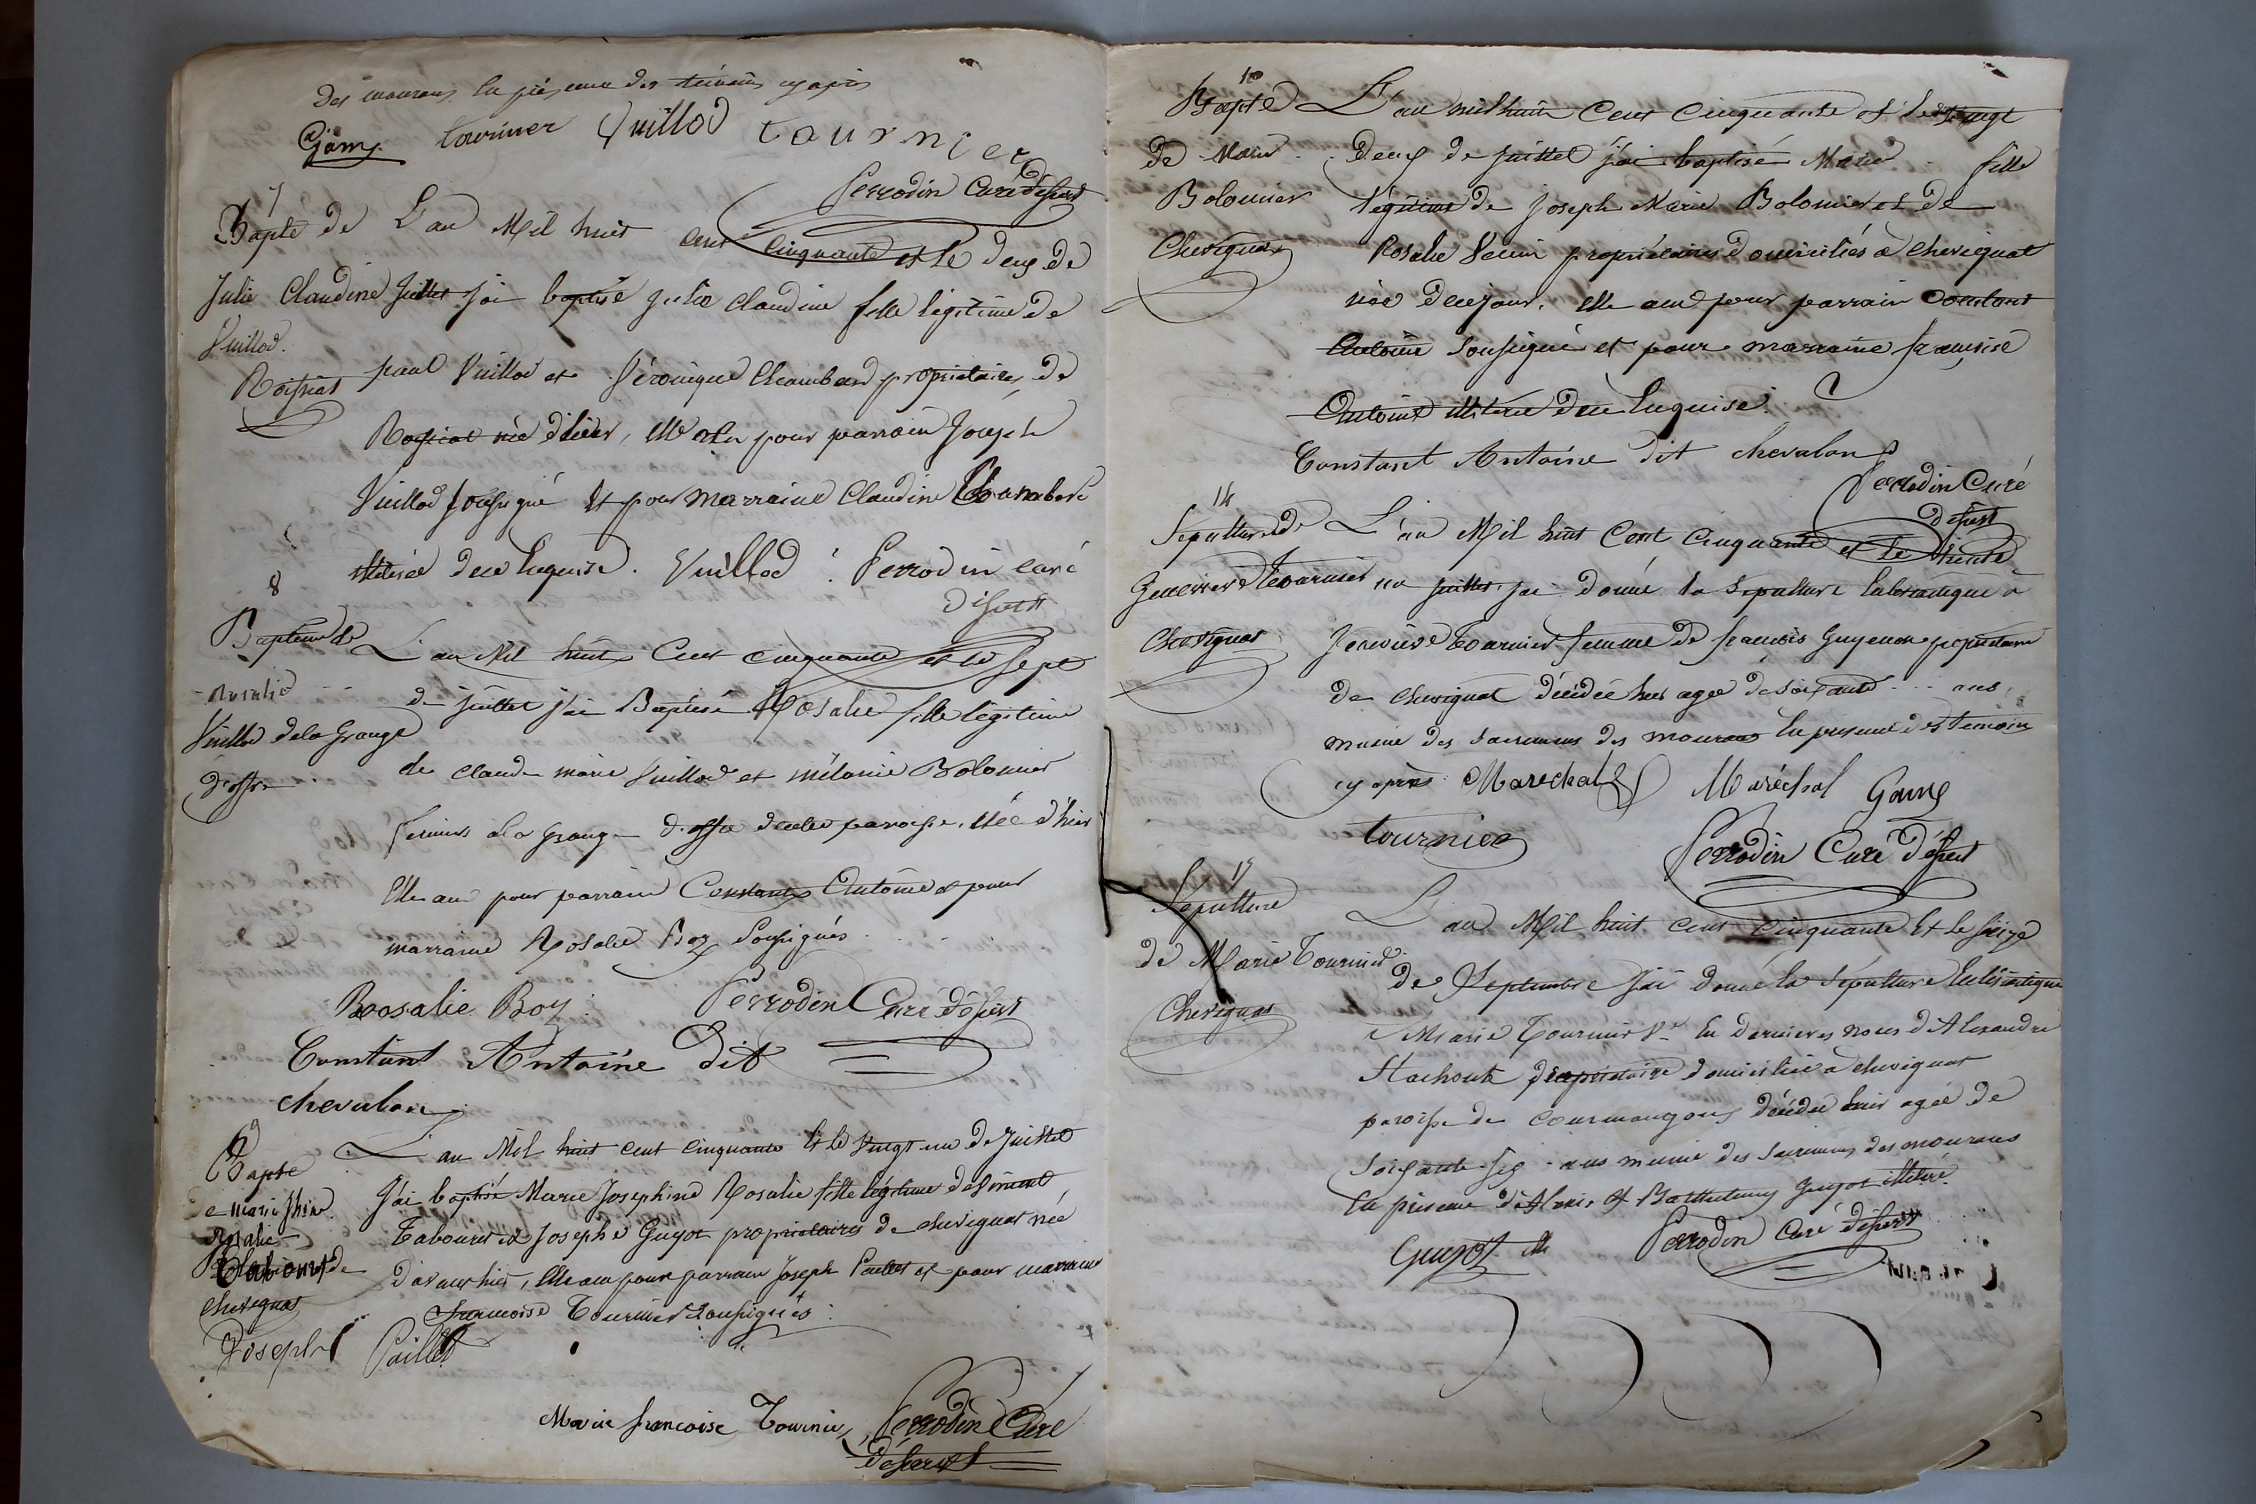 Des mourans En présence des témoins cy après
Gany tournier Vuillod tournier
Perrodin Curé desser
7
Bapte de L'an Mil huit cent cinquante et le deux de
Julie Claudine Juillet j'ai baptisé Julie Claudine fille légitime de
Vuillod.
Roissiat paul Vuillod et Véronique Chambard propriétaires de
Roissiat née d'hier, elle a eu pour parrain Joseph
Vuillod soussigné et pour marraine Claudine Chambard
illitérée de ce Enquise. Vuillod Perrodin curé
dessert
8
Baptême de L'an Mil huit Cent cinquante et le Sept
Rosalie de juillet j'ai Baptisé Rosalie fille légitime
Vuillod de la Grange
de claude marie Vuillod et mélanie Bolomier
fermiers à la grange de cette paroisse, Née d'hier
Elle a eu pour parrain Constant Antoine et pour
marraine Rosalie Boy soussignés
Rosalie Boy Perrodin Curé déssert
Constant Antoine Dit
chevalon
9
Bapte L'an Mil huit cent cinquante Et le vingt un de Juillet
de marie phine J'ai baptisé Marie Josephine Rosalie fille légitime de
Rosalie Tabouret et Josephe Guyot propriétaires de chevignat née
Tabouret de d'avant hier, Elle a eu pour parrain Joseph Paillet et pour marraine
chevignat
francoise Tournier soussignés
Joseph Paillet
Marie francoise Tournier Perrodin Curé
déssert
10
Bapte L'an mil huit Cent Cinquante et le vingt
de Marie deux de Juillet j'ai baptisé Marie fille
Bolomier légitime de Joseph Marie Bolomier et de
Chevignat Rosalie propriétaires domiciliés à chevignat
née de ce jour, elle a eu pour parrain Constant
Antoine soussigné et pour marraine françoise
Antoine illitérée de ce Enquise.
Constant Antoine dit chevalon
Perrodin Curé
dessert
14
Sépulture de L'an Mil huit Cent Cinquante et le trente
Genevieve Tournier un juillet, j'ai donné la sépulture Eclésiastique à
Chevignat Jenevieve Tournier femme de francois Guyenon propriétaire
de chevignat décédée hier agée de soixante ans,
munie des sacremens des mourans En presence des temoins
cy après Marechal Maréchal Gany
tournier Perrodin Curé déssert
15
Sépulture L'an Mil huit cent Cinquante Et le seize
de Marie Tournier de Septembre j'ai donné la sépulture Eclésiastique
Chevignat à Marie Tournier Ve En dernieres noces d'Alexandre
propriétaire domiciliée à chevignat
paroisse de Courmangoux décédée hier agée de
soixante six ans munie des sacremens des mourans
En présence d'Alexis et Barthelemy Guyot illitéré
Guyot Perrodin Curé déssert